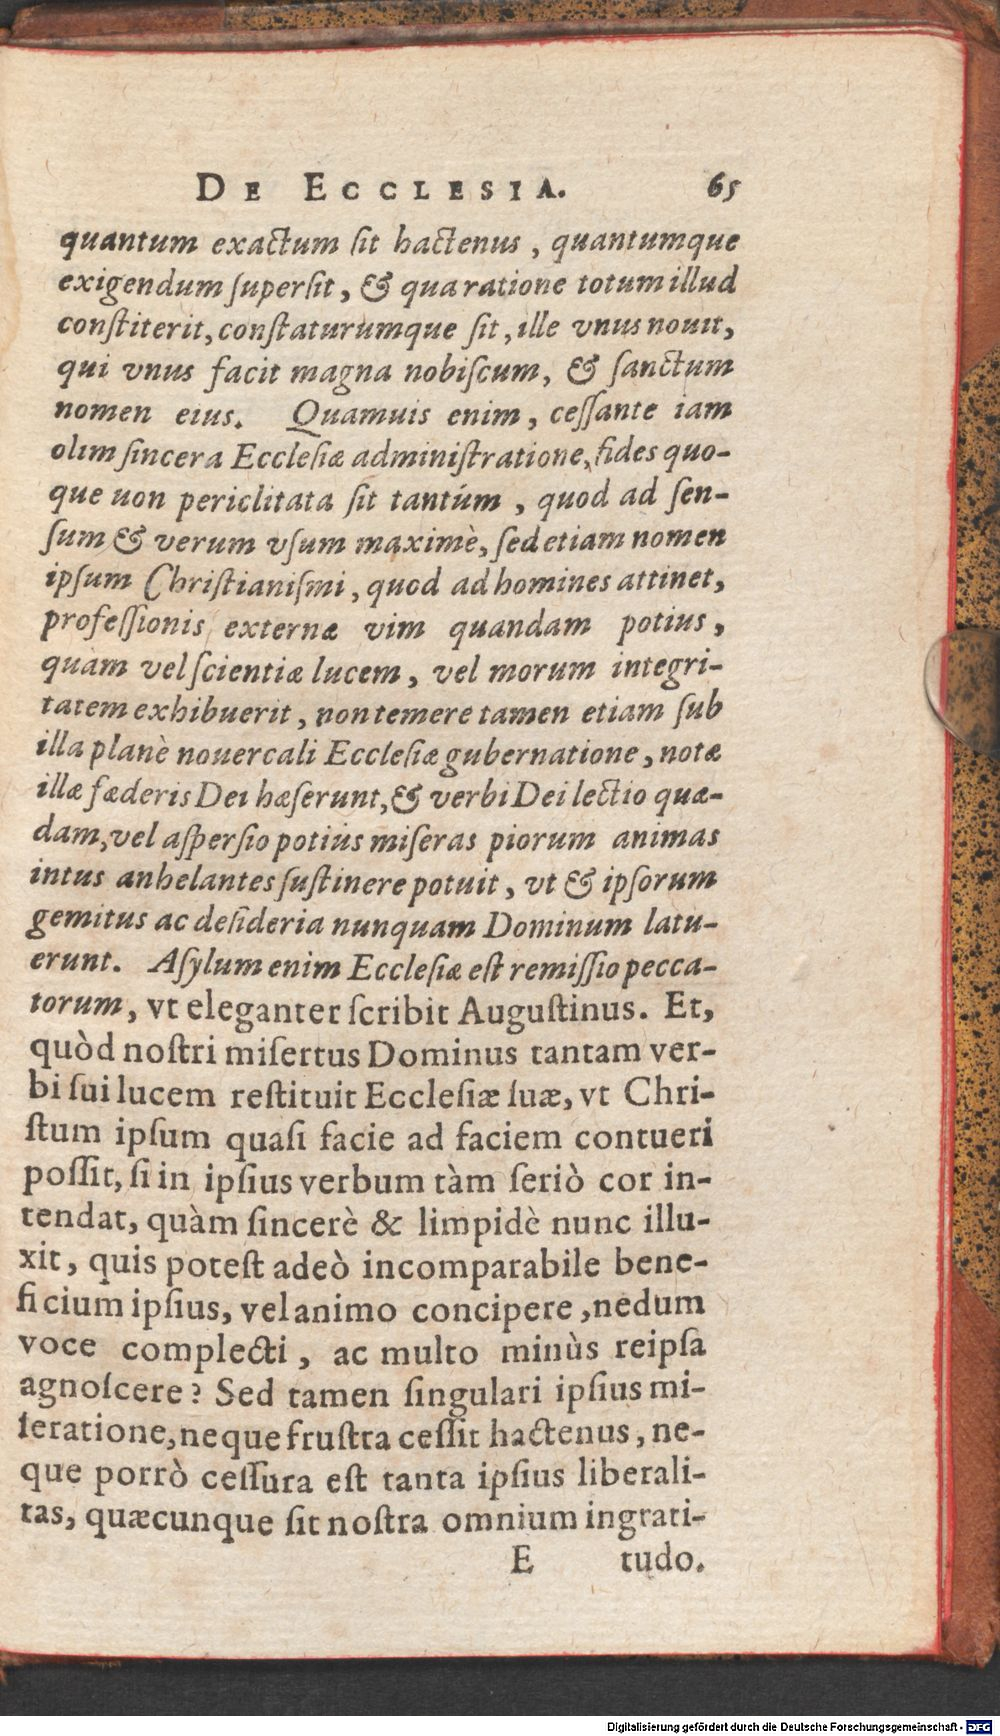 DE ECCLESIA. 65
quantum exactum ſit hactenus, quantumque
exigendum ſuperſit, & qua ratione totum illud
conſtiterit, conſtaturumque ſit, ille vnus nouit,
qui vnus facit magna nobiſcum, & ſanctum
nomen eius. Quamuis enim, ceſſante iam
olim ſincera Eccleſiæ adminiſtratione, fides quo-
que uon periclitata ſit tantúm, quod ad ſen-
ſum & verum vſum maximè, ſed etiam nomen
ipſum Chriſtianiſmi, quod ad homines attinet,
profeſſionis externæ vim quandam potius,
quàm vel ſcientiæ lucem, vel morum integri-
tatem exhibuerit, non temere tamen etiam ſub
illa planè nouercali Eccleſiæ gubernatione, notæ
illæ fæderis Dei hæſerunt, & verbi Dei lectio quæ-
dam, vel aſperſio potiùs miſeras piorum animas
intus anhelantes ſuſtinere potuit, vt & ipſorum
gemitus ac deſideria nunquam Dominum latu-
erunt. Aſylum enim Eccleſiæ eſt remiſſio pecca-
torum, vt eleganter ſcribit Auguſtinus. Et,
quòd noſtri miſertus Dominus tantam ver-
bi ſui lucem reſtituit Eccleſiæ ſuæ, vt Chri-
ſtum ipſum quaſi facie ad faciem contueri
poſſit, ſi in ipſius verbum tàm ſeriò cor in-
tendat, quàm ſincerè & limpidè nunc illu-
xit, quis poteſt adeò incomparabile bene-
ficium ipſius, vel animo concipere, nedum
voce complecti, ac multo minùs reipſa
agnoſcere? Sed tamen ſingulari ipſius mi-
ſeratione, neque fruſtra ceſſit hactenus, ne-
que porrò ceſſura eſt tanta ipſius liberali-
tas, quæcunque ſit noſtra omnium ingrati-
E tudo.
Digitalisierung gefördert durch die Deutsche Forschungsgemeinschaft - DFG